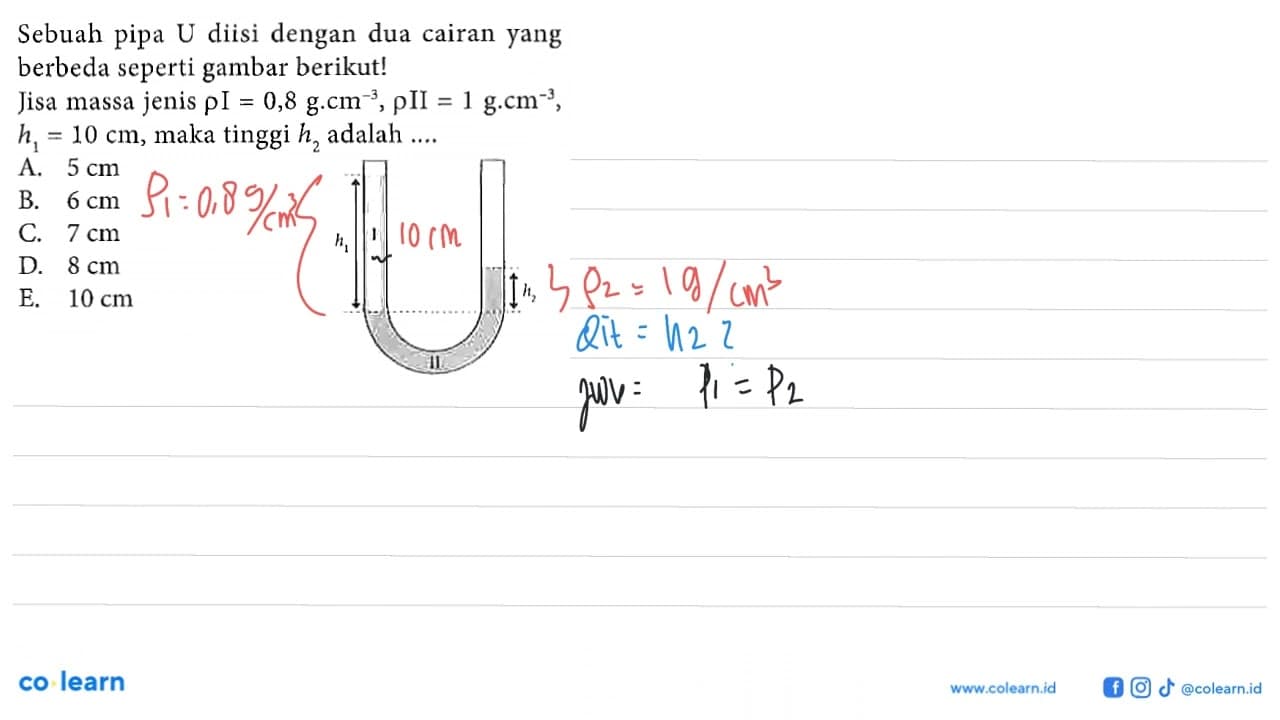 Sebuah pipa U diisi dengan dua cairan yang
berbeda seperti gambar berikut!
Jisa massa jenis ρI = 0,8 g.cm⁻³, ρII = 1 g.cm⁻³,
h₁ = 10 cm, maka tinggi h₂ adalah ....
A. 5 cm
B. 6 cm
C. 7 cm
D. 8 cm
E. 10 cm
ρ₁ = 0,8 g/cm³
h₁
I
10 cm
h₂
II
ρ₂ = 1 g/cm³
Dit = h₂ ?
jwv = P₁ = P₂
co learn
www.colearn.id
@colearn.id